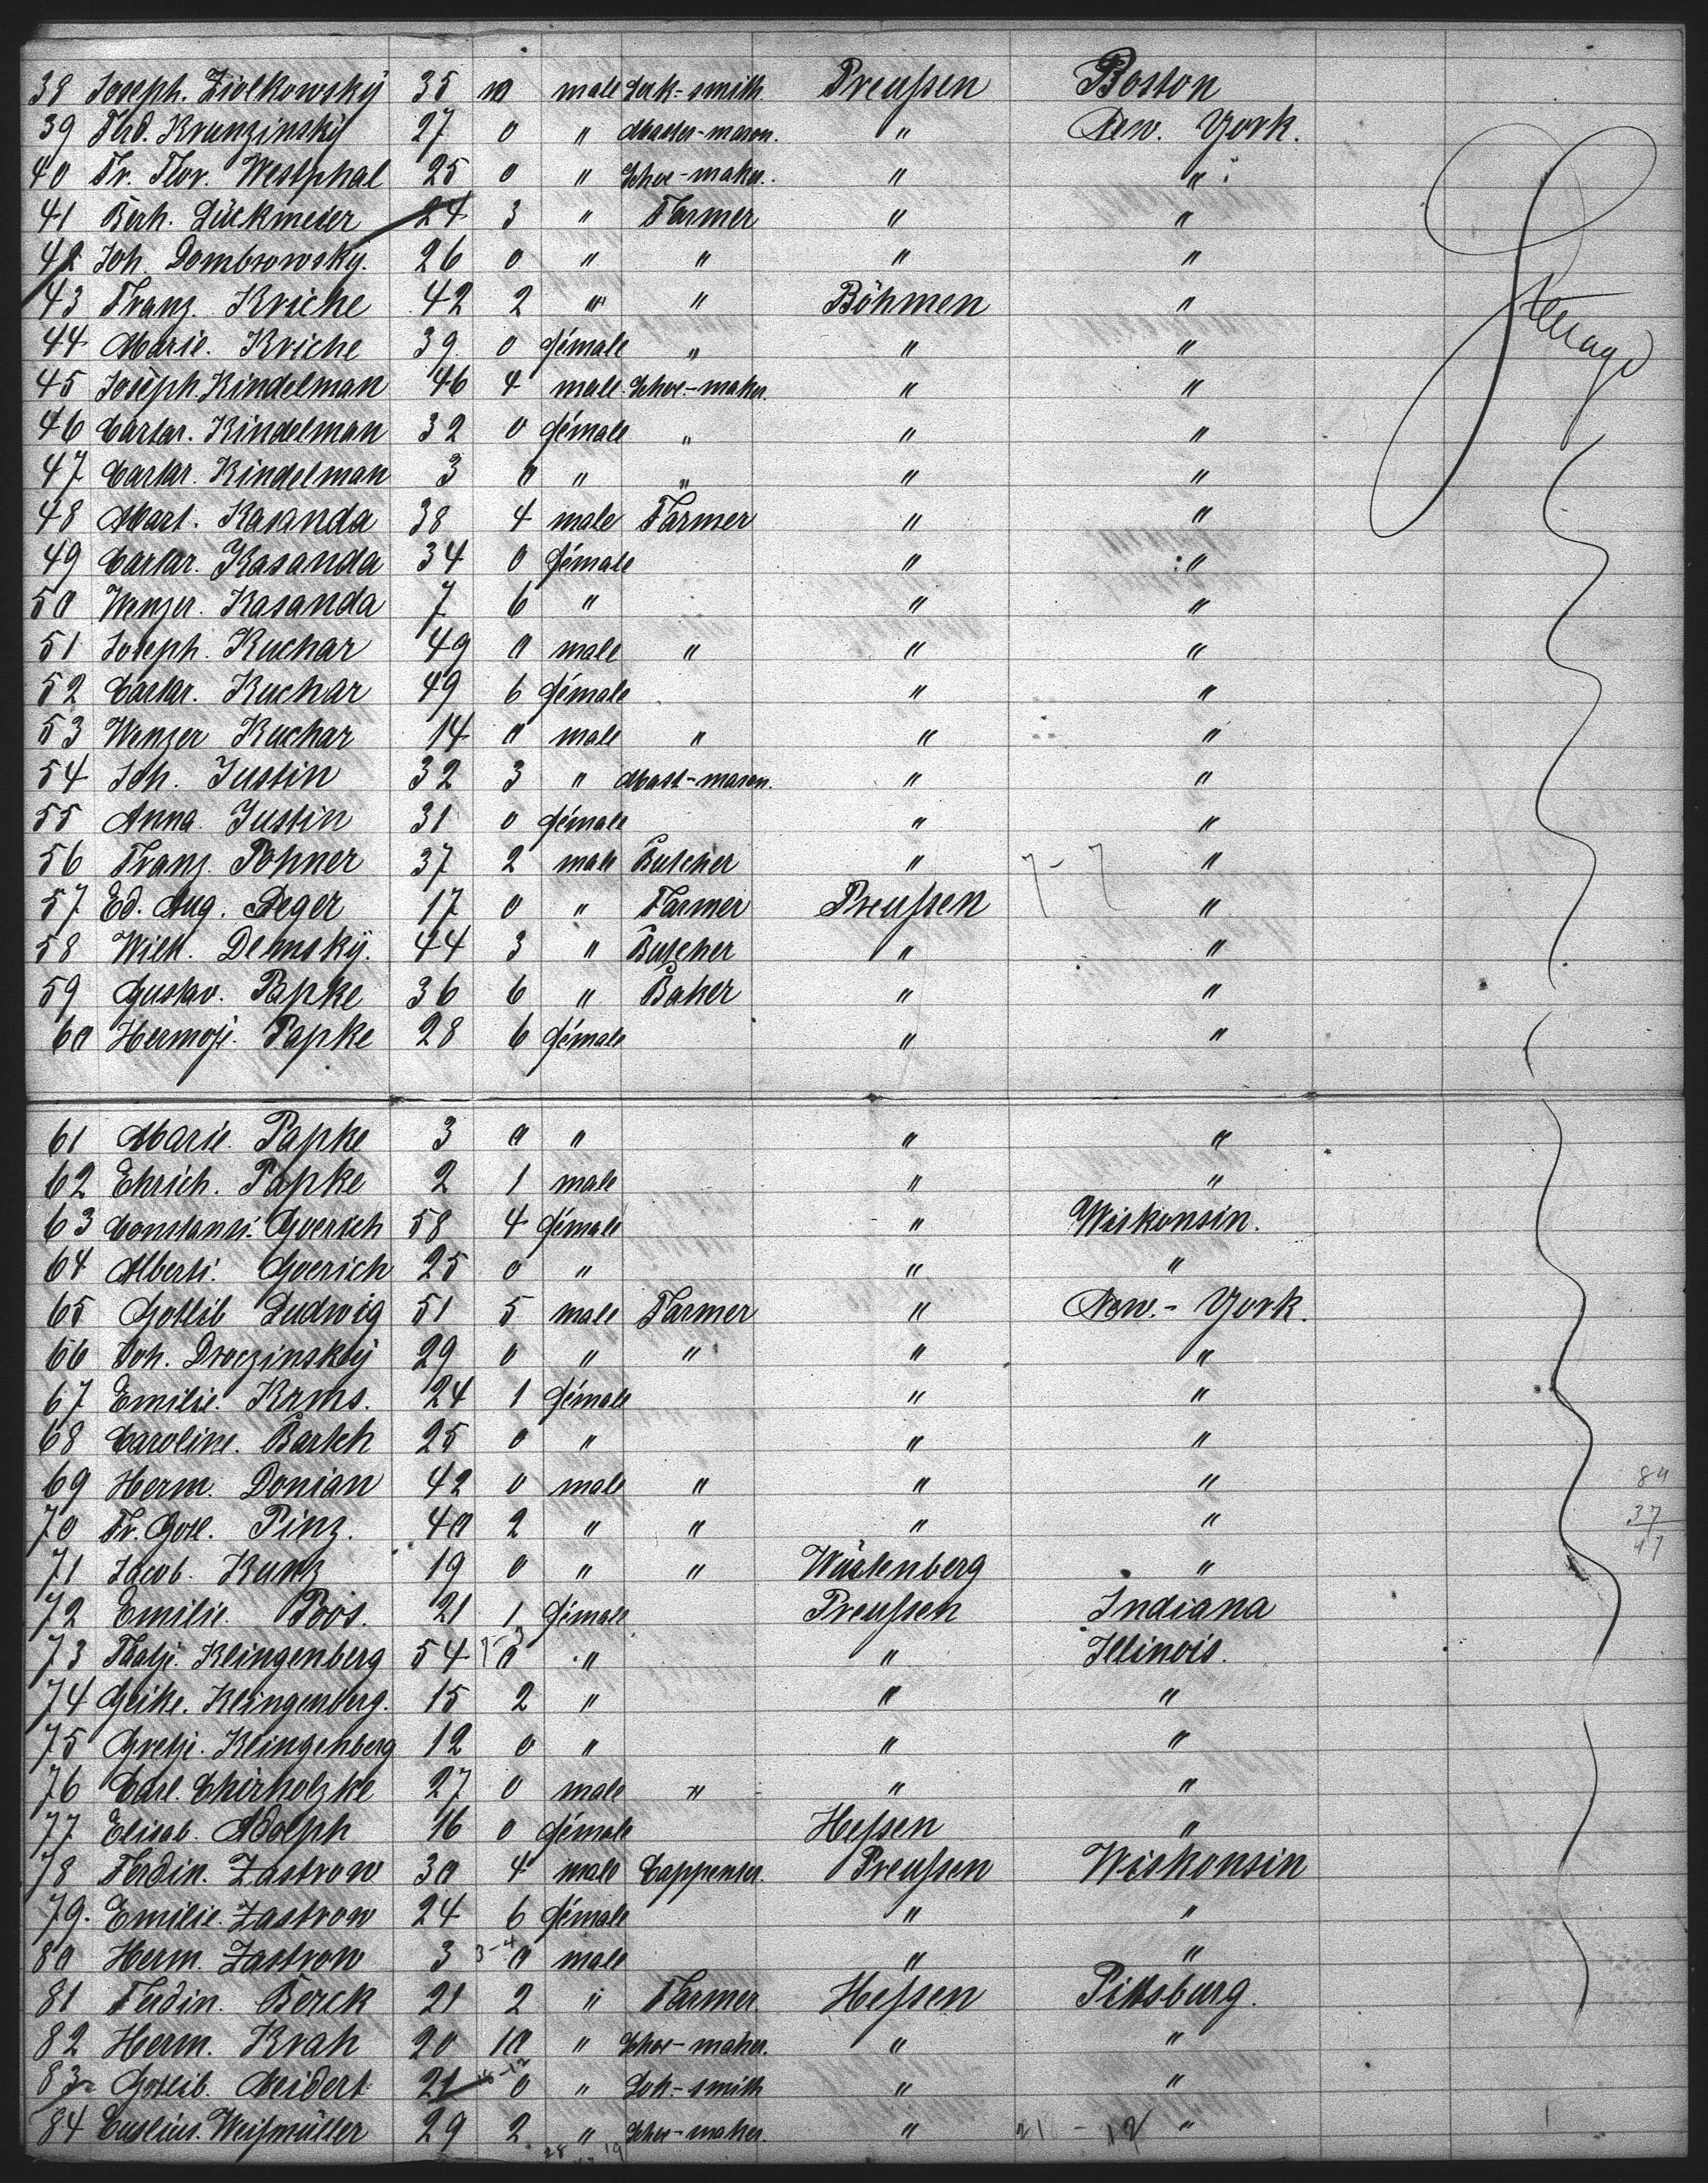 38 Joseph. Ziolkowsky 35 10 male Lock-smith. Preußen Boston
39 Ferd. Krunzinsky 27 0 " Master-mason. " New. York.
40 Fr. Flor. Westphal 25 0 " Schoe-maker. " "
41 Berh. Lückmeier 24 3 " Farmer " "
42 Joh. Dombrowsky. 26 0 " " " "
43 Franz. Kriche 42 2 " " Böhmen "
44 Marie. Kriche 39 0 fémale " " "
45 Joseph. Kindelman 46 4 male Schoe-maker. " "
46 Carbar. Kindelman 32 0 fémale " " "
47 Carbar. Kindelman 3 0 " " " "
48 Mart. Kasanda 38 4 male Farmer " "
49 Carbar. Kasanda 34 0 fémale " "
50 Wenzer. Kasanda 7 6 " " "
51 Joseph. Kuchar 49 0 male " " "
52 Carbar. Kuchar 49 6 fémale " "
53 Wenzer Kuchar 14 0 male " " "
54 Joh. Justin 32 3 " Mast-mason. " "
55 Anna. Justin 31 0 fémale " "
56 Franz. Pohner 37 2 male Butcher " 7-7 "
57 Ed. Aug. Deger 17 0 " Farmer Preußen "
58 Wilh. Demsky. 44 3 " Butcher " "
59 Gustav. Papke 36 6 " Baker " "
60 Papke 28 6 fémale " "
61 Marie. Papke 3 0 " " "
62 Ehrich. Papke 2 1 male " "
63 Constansi. Goerich 58 4 fémale " Wiskonsin.
64 Alberti. Goerich 25 0 " " "
65 Gottlib Ludwig 51 5 male Farmer " New.-York.
66 Joh. Droczinsky 29 0 " " " "
67 Emilie. Krms. 24 1 fémale " "
68 Caroline. Bartch 25 0 " " "
69 Herm. Donian 42 0 male " " "
70 Fr. Gotl. Pinz. 40 2 " " " "
71 Jacob. Kunz 19 0 " " Würtenberg "
72 Emilie. Poos. 21 1 fémale Preußen Indiana
73 Klingenberg 54 0 " " Illinois.
74 Geike. Klingenberg. 15 2 " " "
75 Gretje. Klingenberg 12 0 " " "
76 Carl. Chirholzke 27 0 male " " "
77 Elisab. Adolph 16 0 fémale Heßen "
78 Ferdin. Zastrow 30 4 male Cappenter. Preußen Wiskonsin
79. Emilie. Zastrow 24 6 fémale " "
80 Herm. Zastrow 3 3-4 0 male " "
81 Ferdin. Berck 21 2 " Farmer. Heßen Pittsburg.
82 Herm. Krah 20 10 " Schoe-maker. " "
83 Gotlib. Neidert 21 0 " Lok-smith " "
84 Weißmüller 29 2 " Schoe-maker. " 21 - 12 "
Steerage
84
37
47
28 19